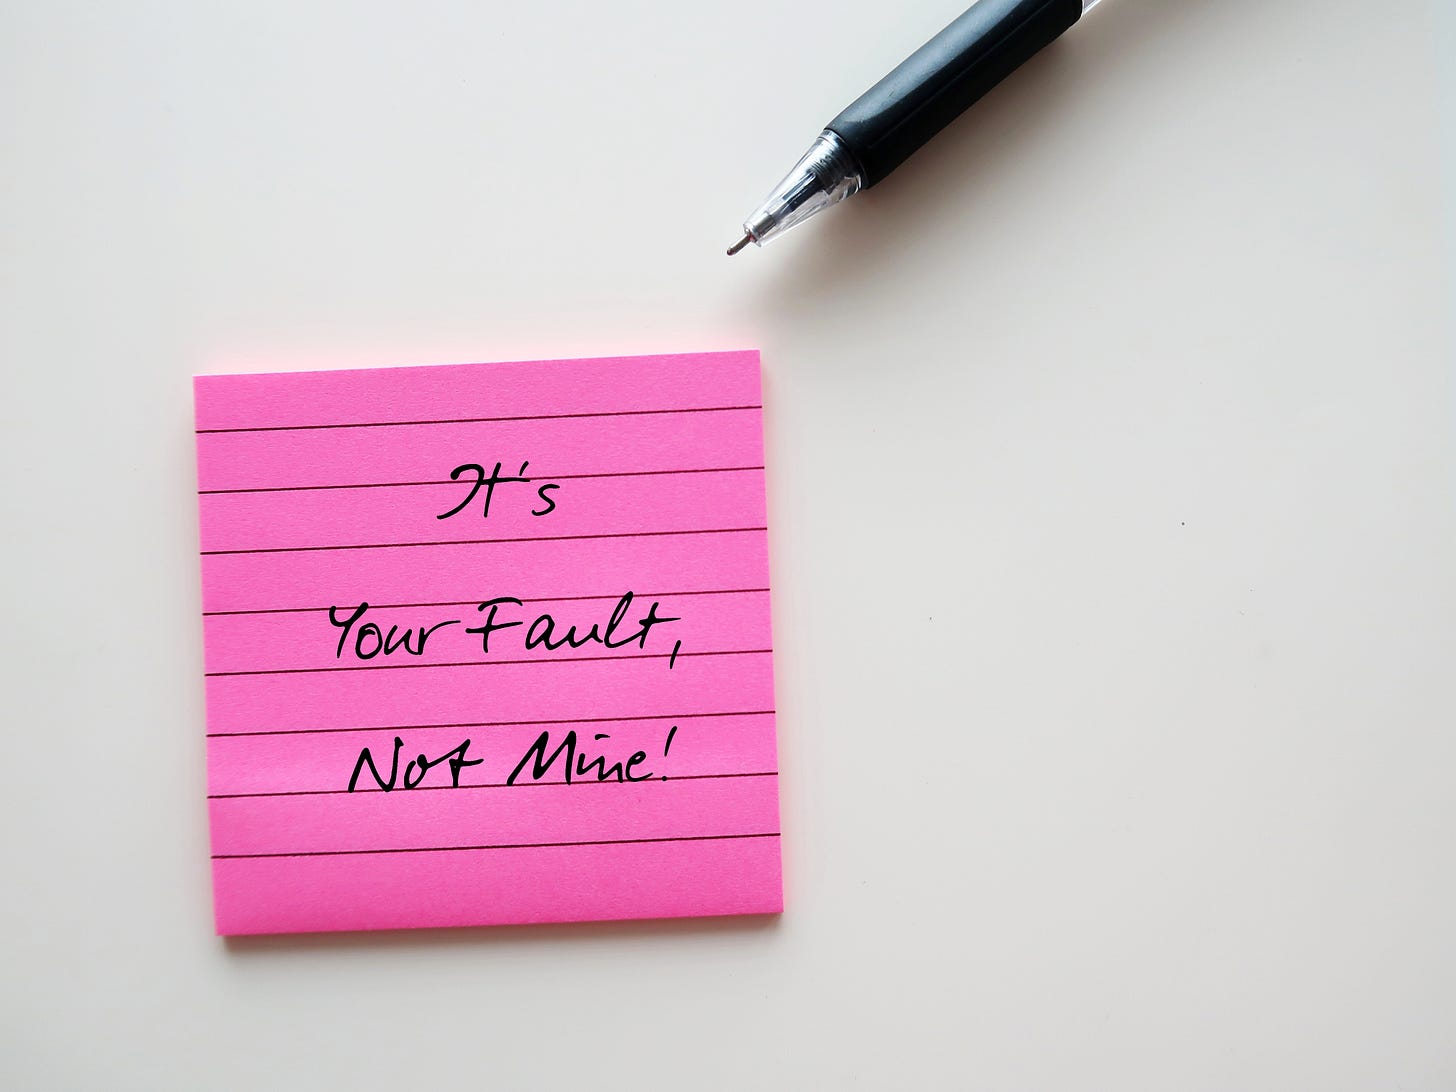 It's
Your Fault,
Not Mine!